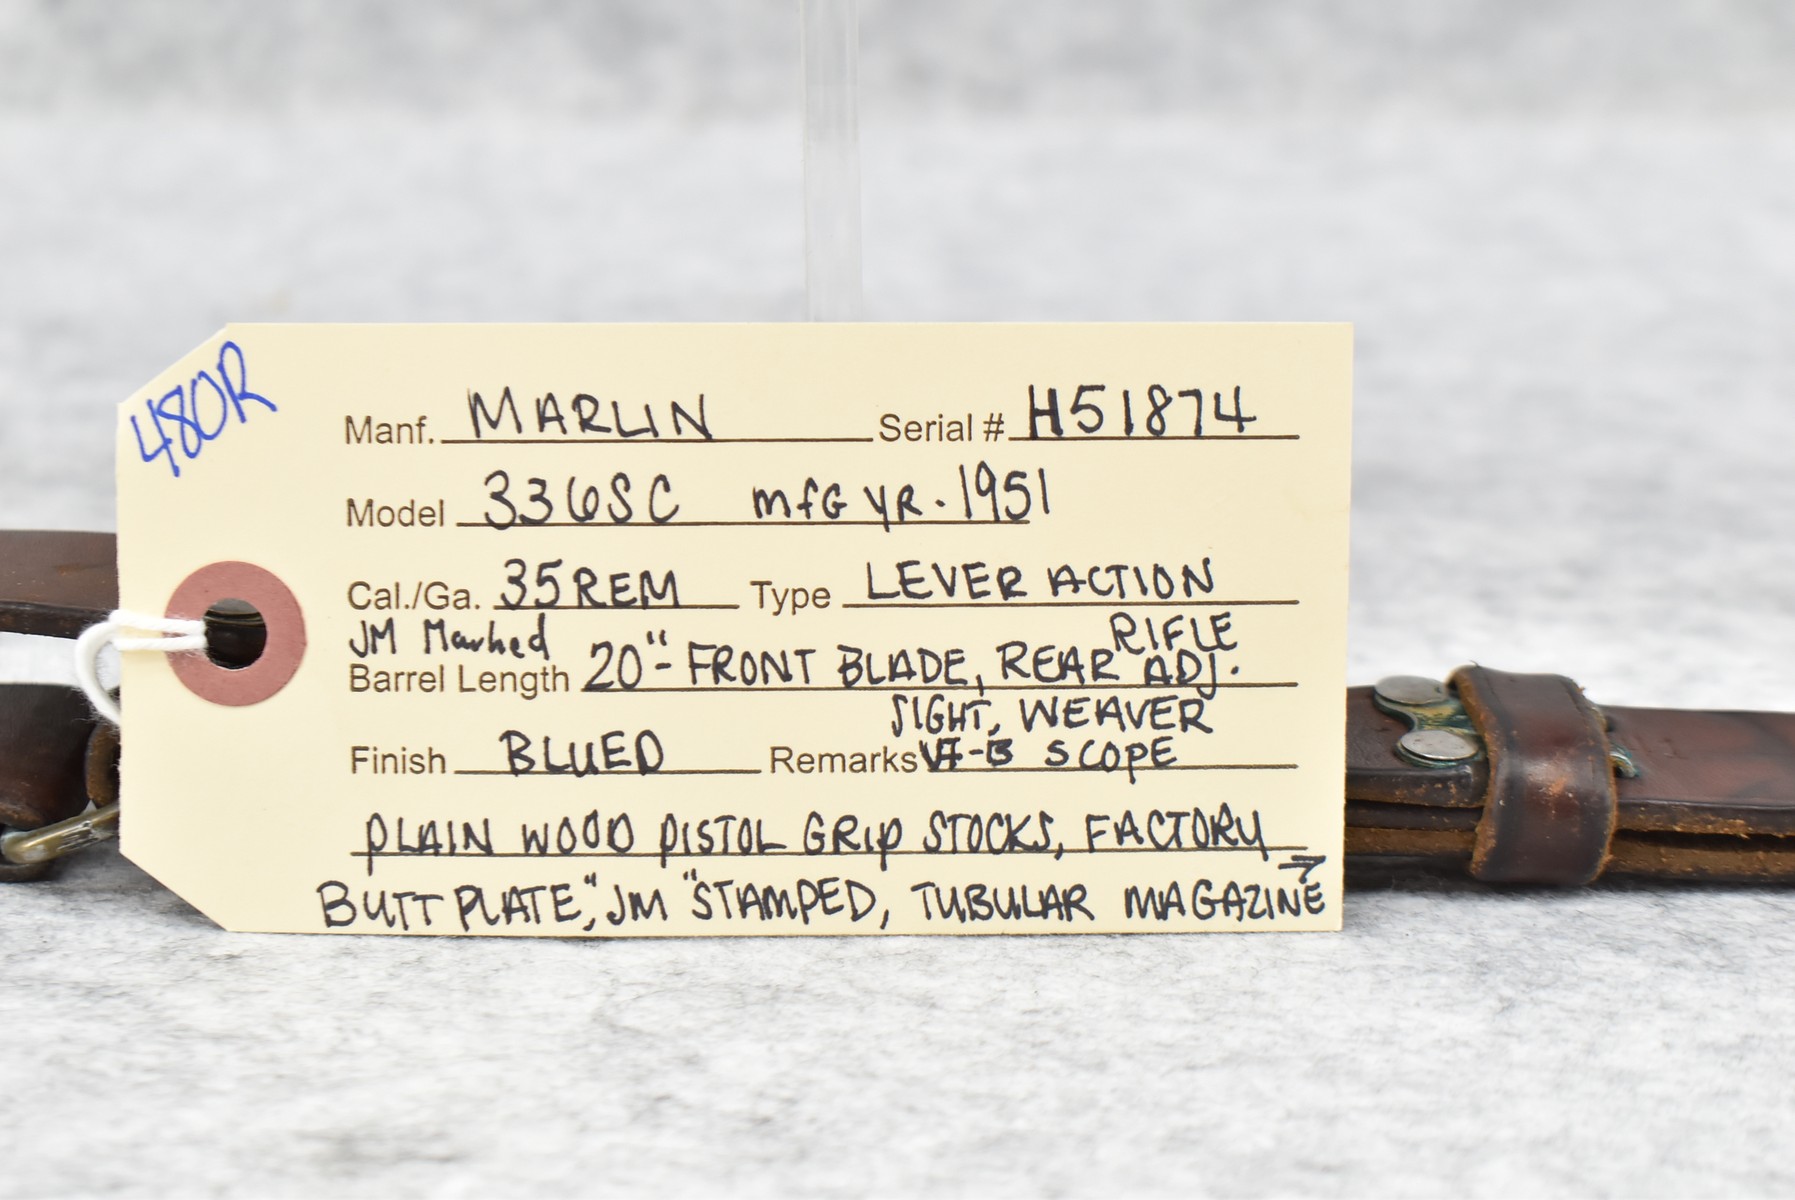 480R
Manf. MARLIN Serial # H51874
Model 336SC mfG YR. 1951
Cal./Ga. 35 REM Type LEVER ACTION
JM Marked RIFLE
Barrel Length 20"- FRONT BLADE, REAR ADJ.
SIGHT, WEAVER
Finish BLUED Remarks SCOPE
PLAIN WOOD PISTOL GRIP STOCKS, FACTORY
BUTT PLATE, "JM" STAMPED, TUBULAR MAGAZINE →